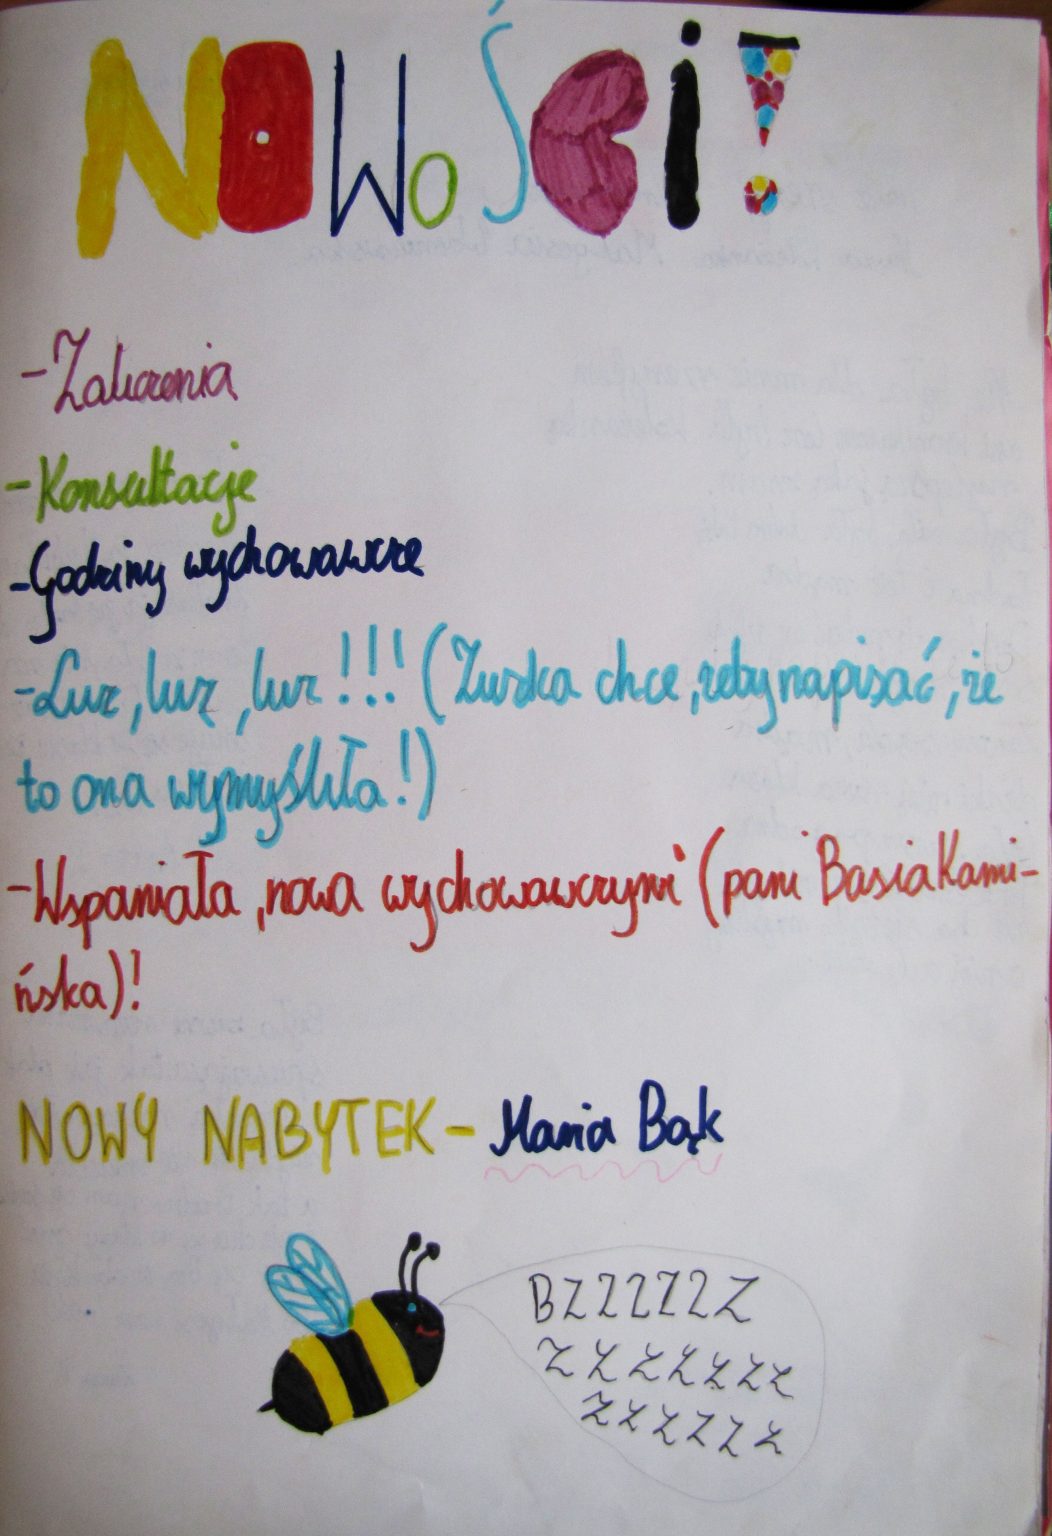 NOWOŚCI!
-Zaliczenia
-Konsultacje
-Godziny wychowawcze
-Luz, luz, luz!!! (Zuzka chce, żeby napisać, że
to ona wymyśliła!)
-Wspaniała, nowa wychowawczyni (pani Basia Kami-
ńska)!
NOWY NABYTEK - Mania Bąk
BZZZZZZ
ZZZZZZZ
ZZZZZZ